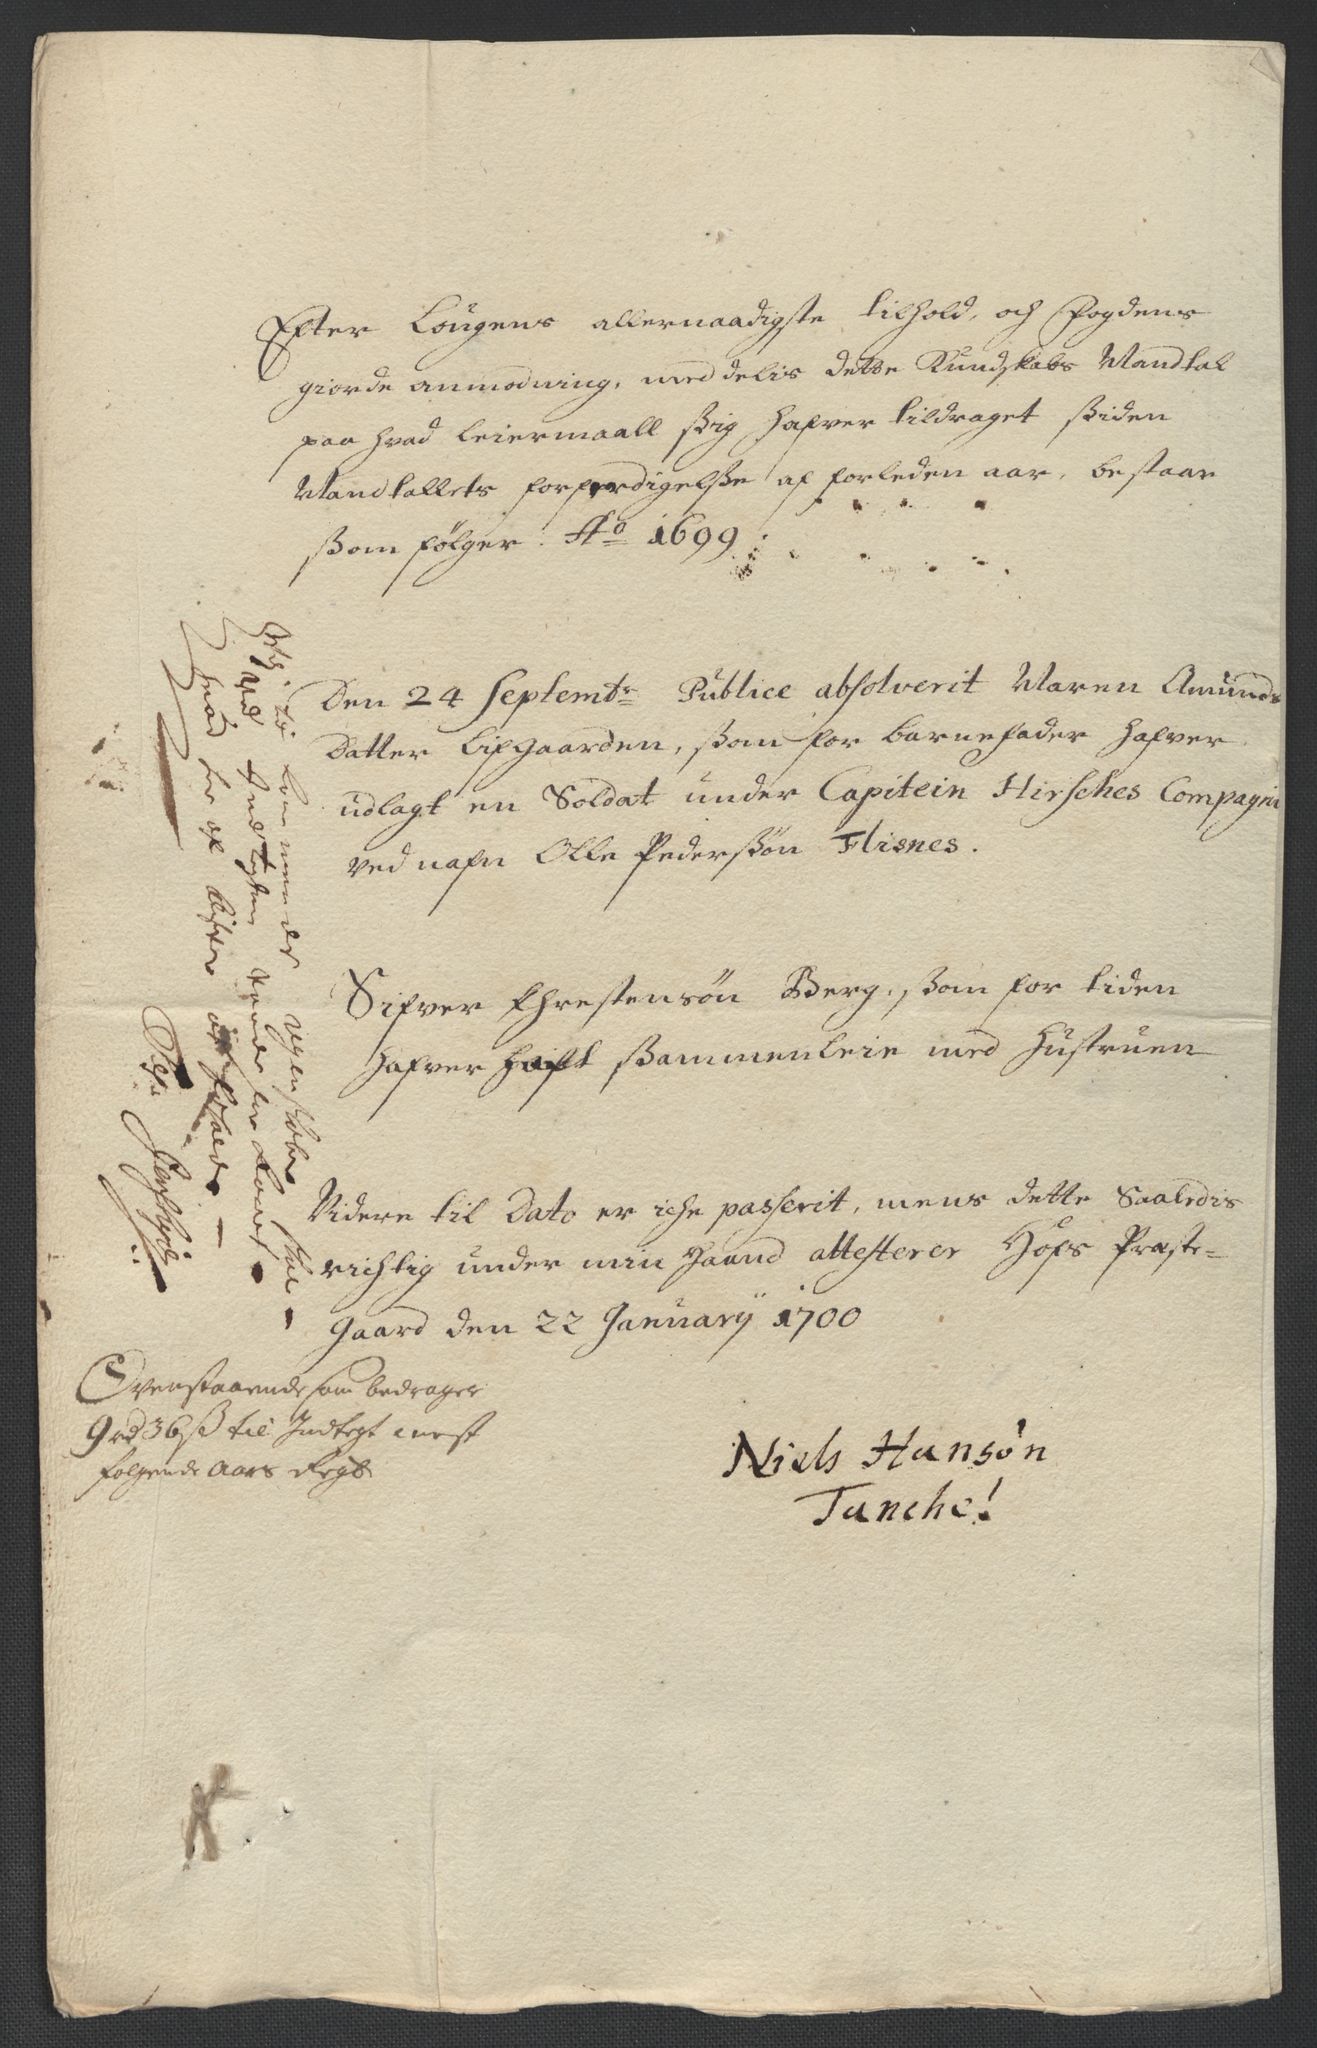 Efter Lougens allernaadigste tilhold, och Fogdens
giorde anmodning, meddelis dette Kundskabs Mandtal
paa hvad leiermaall sig hafver tildraget siden
Mandtallets forferdigelse af forleden aar, bestaar
som følger. Ao 1699
Den 24 Septembr Publice absolverit Maren Amunds
Datter Lifgaarden, som for barnefader hafver
udlagt en Soldat under Capitein Hirsches Compagni
ved nafn Olle Pedersøn Flisnes.
Sifver Chrestensøn Berg, som for tiden
hafver haft sammenleie med Hustruen
Videre til Dato er iche passerit, mens dette Saaledis
richtig under min Haand attesterer Hofs Præste-
Gaard den 22 Januarij 1700
Niels Hansøn
Tanche!
Ovenstaaende som bedrager
9 rd 36 ß til Indtegt nest
folgende Aars Regsk